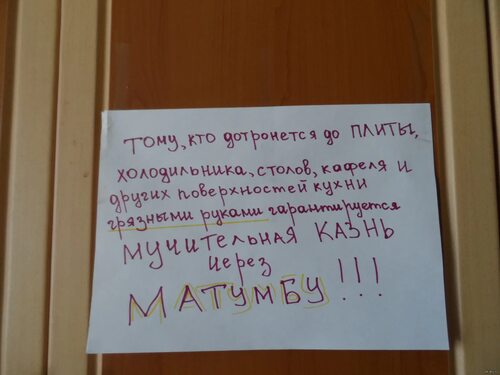 Тому, кто дотронется до ПЛИТЫ,
холодильника, столов, кафеля и
других поверхностей кухни
грязными руками гарантируется
МУЧИТЕЛЬНАЯ КАЗНЬ
через
МАТУМБУ!!!